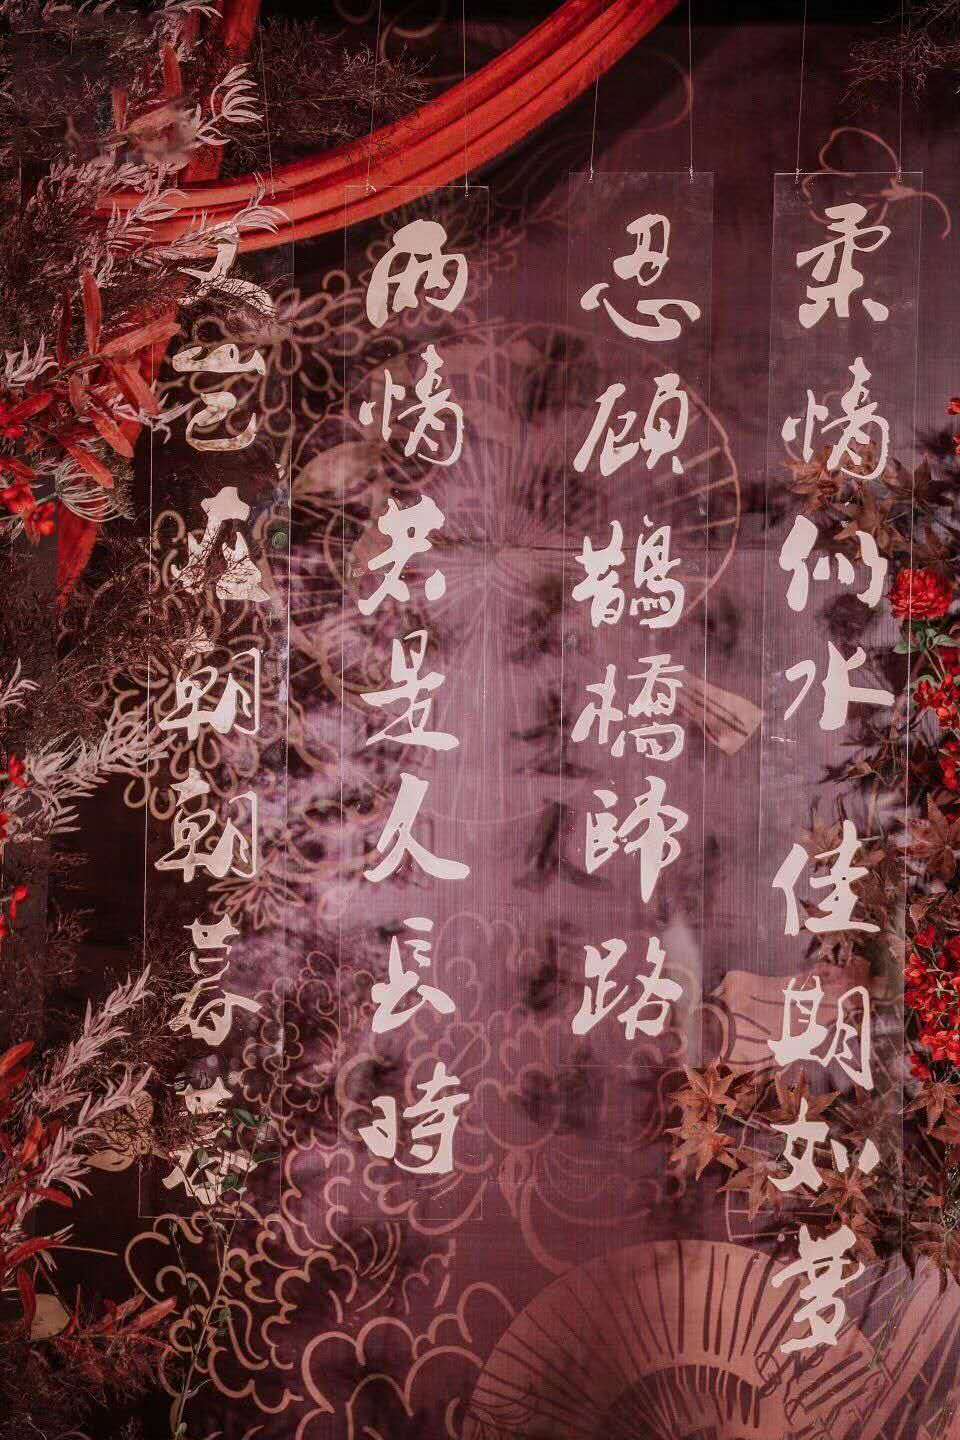 柔情似水 佳期如夢
忍顧鵲橋歸路
兩情若是久長時
又豈在朝朝暮暮